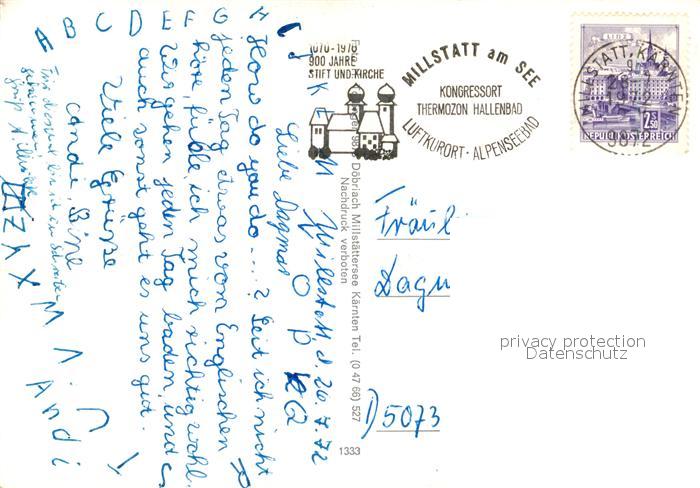 1070-1970
900 JAHRE
STIFT UND KIRCHE
MILLSTATT am SEE
KONGRESSORT
THERMOZON HALLENBAD
LUFTKURORT · ALPENSEEBAD
LINZ
MILLSTATT, KÄRNTEN
9872
2.50 S
REPUBLIK ÖSTERREICH
Millstatt, d. 26.7.72
Liebe Dagmar
How do you do....? Seit ich nicht
jeden Tag etwas vom Englischen
höre, fühle ich mich richtig wohl.
Wir gehen jeden Tag baden, und
auch sonst geht es uns gut.
Viele Grüße
A B C D E F G H
O P Q R
Z Y X
M
N
Andi
Fräul
Dagm
D 5073
Döbriach Millstättersee Kärnten Tel. (0 47 66) 527
Nachdruck verboten
1333
privacy protection
Datenschutz